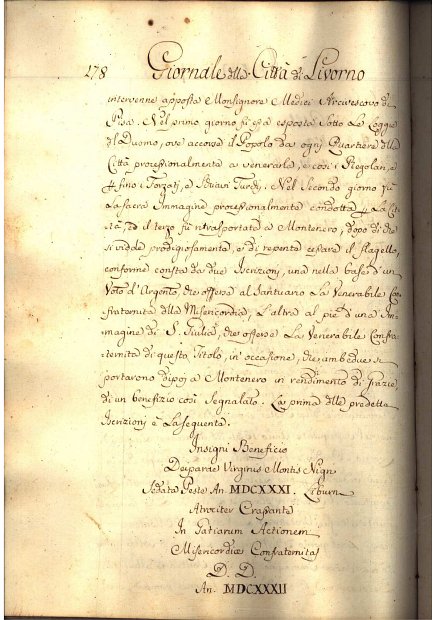 178 Giornale della Città di Livorno
intervenne apposta Monsignore Medici Arcivescovo di
Pisa. Nel primo giorno fu essa esposta sotto le Logge
del Duomo, ove accorse il Popolo da ogni Quartiere della
Città processionalmente a venerarla, e così i Regolari, e
fino i Forzati, e Schiavi Turchi. Nel Secondo giorno fu
la sacra Immagine processionalmente condotta p. la Cit-
tà, ed il terzo fu ritrasportata a Montenero, dopo di che
si vidde prodigiosamente, e di repente cessare il flagello,
conforme consta da due Iscrizioni, una nella base d'un
Voto d'Argento, che offerse al Santuario la Venerabile Con
fraternita della Misericordia, e l'altra al piè d'una Im-
magine di S. Giulia, che offerse la Venerabile Confra-
ternita di questo Titolo, in occasione, che ambedue si
portarono dipoi a Montenero in rendimento di Grazie
di un benefizio così segnalato. La prima delle predette
Iscrizioni è la seguente.
Insigni Beneficio
Deiparae Virginis Montis Nigri
Sedata Peste An. MDCXXXI. Liburn
Atrociter Crassante
In Gratiarum Actionem
Misericordiae Confraternitas
D. D.
An. MDCXXXII